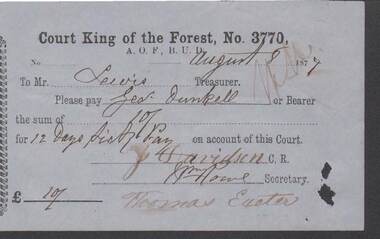 Court King of the Forest, No. 3770,
A. O. F., B. U. D.
No August 8 1877
To Mr. Lewis Treasurer.
Please pay Geo. Dunkell or Bearer
the sum of 10/
for 12 Days Sick Pay on account of this Court.
J Davidson C. R.
Wm Howe Secretary.
£ 10/
Thomas Exeter